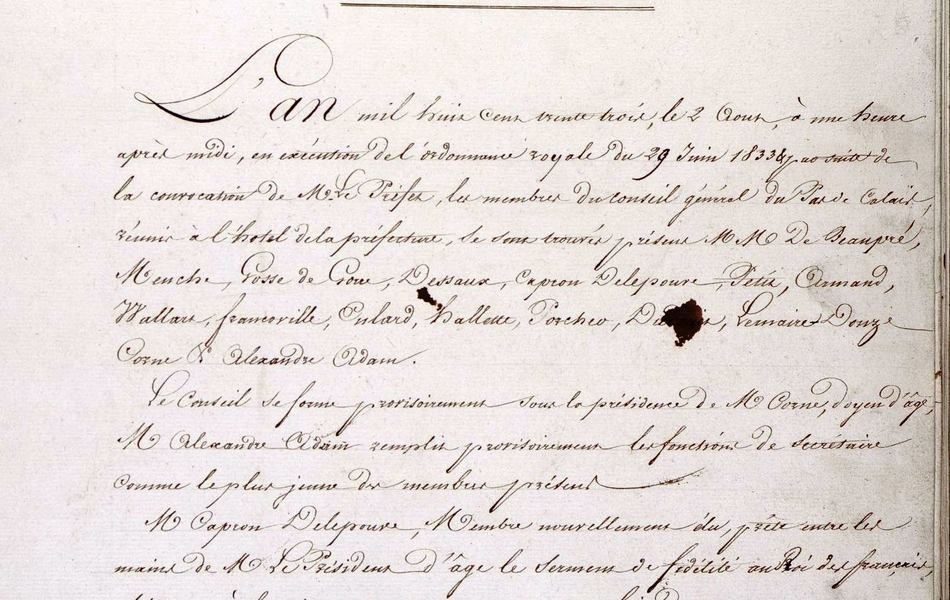 L'an mil huit cent trente trois, le 2 Aout, à une heure
après midi, en exécution de l'ordonnance royale du 29 Juin 1833 & par suite de
la convocation de M. Le Préfet, les membres du conseil général du Pas de Calais,
réunis à l'hotel de la préfecture, se sont trouvés présens MM De Beaupré,
Menche, Gosse de Dessaux, Capron Delepouve, Petit, Armand,
Wallart, francoville, Enlard, hallette, Porcheo, Lemaire Douze
Corne & Alexandre Adam.
Le Conseil se forme provisoirement sous la présidence de M Corne, doyen d'âge,
M Alexandre Adam remplit provisoirement les fonctions de Secrétaire
comme le plus jeune des membres présens
M Capron Delepouve, Membre nouvellement élu, prête entre les
mains de M Le Président d'âge le Serment de fidélité au Roi des français,